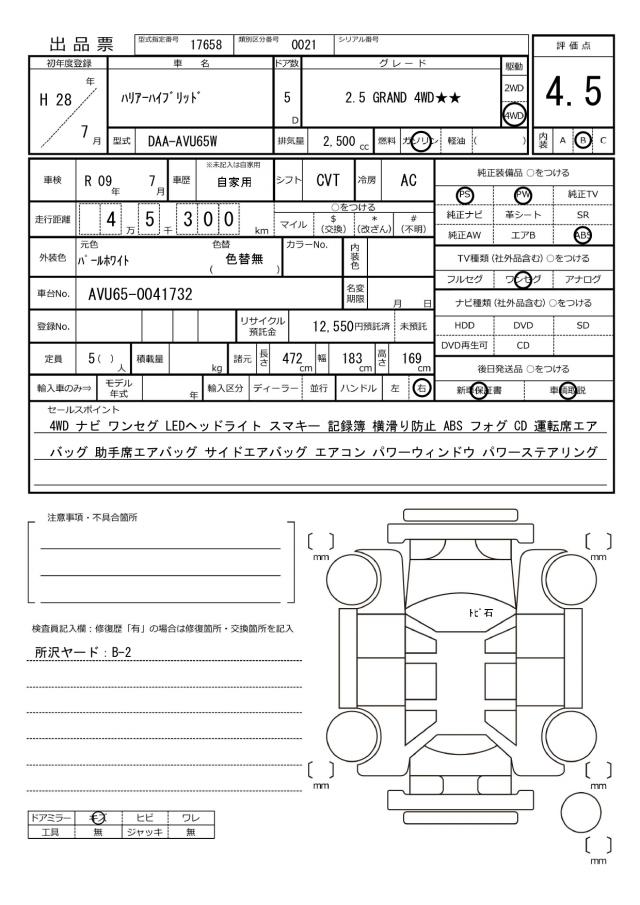 出品票 型式指定番号 17658 類別区分番号 0021 シリアル番号
評価点
4.5
初年度登録 車名 ドア数 グレード 駆動
H 28 年 7 月
ﾊﾘｱｰﾊｲﾌﾞﾘｯﾄﾞ
5 D
2.5 GRAND 4WD★★
2WD
4WD
型式 DAA-AVU65W 排気量 2,500 cc 燃料 ガソリン 軽油 ( )
内装 A B C
車検 R 09 年 7 月 車歴 ※未記入は自家用 自家用 シフト CVT 冷房 AC
走行距離 4 万 5 千 3 0 0 km
○をつける
マイル $ (交換) * (改ざん) # (不明)
外装色 元色 パールホワイト 色替 ( 色替無 ) カラーNo. 内装色
車台No. AVU65-0041732 名変期限 月 日
登録No. リサイクル預託金 12,550円預託済 未預託
定員 5 ( ) 人 積載量 kg 諸元 長さ 472 cm 幅 183 cm 高さ 169 cm
輸入車のみ⇒ モデル年式 年 輸入区分 ディーラー 並行 ハンドル 左 右
純正装備品 ○をつける
PS PW 純正TV
純正ナビ 革シート SR
純正AW エアB ABS
TV種類 (社外品含む) ○をつける
フルセグ ワンセグ アナログ
ナビ種類 (社外品含む) ○をつける
HDD DVD SD
DVD再生可 CD
後日発送品 ○をつける
新車保証書 車輌取説
セールスポイント
4WD ナビ ワンセグ LEDヘッドライト スマキー 記録簿 横滑り防止 ABS フォグ CD 運転席エア
バッグ 助手席エアバッグ サイドエアバッグ エアコン パワーウィンドウ パワーステアリング
注意事項・不具合箇所
検査員記入欄：修復歴「有」の場合は修復箇所・交換箇所を記入
所沢ヤード：B-2
ドアミラー キズ ヒビ ワレ
工具 無 ジャッキ 無
[ ] mm
[ ] mm
ﾄﾋﾞ石
[ ] mm
[ ] mm
[ ] mm